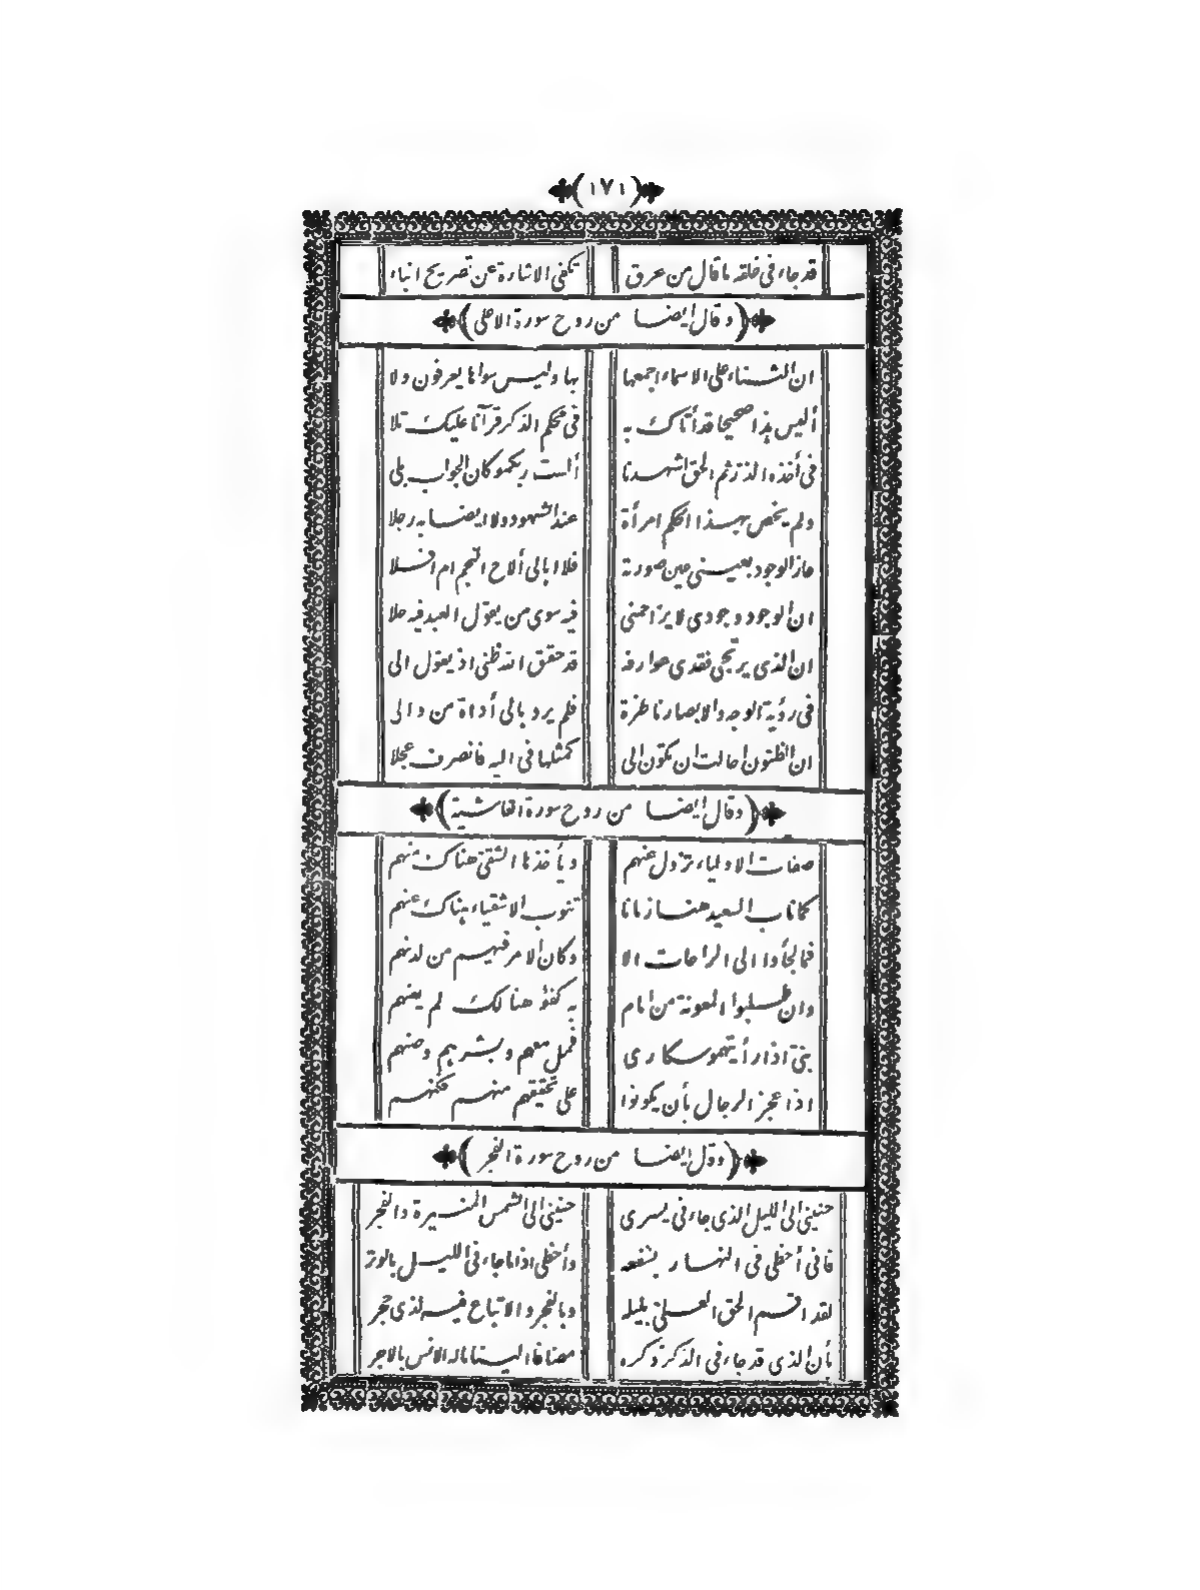 (١٧١)
قد جاء في خلقه ما قال من عرق تكفي الاشارة عن تصريح انباء
(وقال ايضا من روح سورة الاعلى)
ان الثناء على الاسماء اجمعها بها وليس سواها يعرفون ولا
أليس هذا صحيحا قد أتاك به في محكم الذكر قرآنا عليك تلا
في أخذه الذر ثم الحق اشهدنا ألست ربكمو كان الجواب بلى
ولم يخص بهذا الحكم امرأة عند الشهود ولا ايضا به رجلا
حاز الوجود بعيني عين صورته فلا ابالي ألاح النجم ام افلا
ان الوجود وجودي لا يزاحمني فيه سوى من يقول العبد فيه حلا
ان الذي يرتجي فقدي عوارفه قد حقق الله ظني اذ يقول الى
في رؤية الوجه والابصار ناظرة فلم يرد بالى أداة من والى
ان الظنون احالت ان تكون الى كمثلها في اليه فانصرف عجلا
(وقال ايضا من روح سورة الغاشية)
صفات الاولياء تزول عنهم ويأخذها الشقي هناك منهم
كما ناب السعيد هنا زمانا تنوب الاشقياء هناك عنهم
فما لجأوا الى الراحات الا وكان الامر فيهم من لدنهم
وان طلبوا المعونة من امام به كفؤ هنالك لم يعنهم
بني اذا رأيتهمو سكارى فمل معهم وبشرهم وصنهم
اذا عجز الرجال بأن يكونوا على تحقيقهم منهم فكنهم
(وقال ايضا من روح سورة الفجر)
حنيني الى الليل الذي جاء في يسرى حنيني الى الشمس المنيرة والفجر
فاني أحظى في النهار بشفعه وأحظى اذا ما جاء في الليل بالوتر
لقد اقسم الحق العلي بليله وبالفجر والاتباع فيه لذي حجر
بأن الذي قد جاء في الذكر ذكره مضافا الينا ماله الانس بالاجر